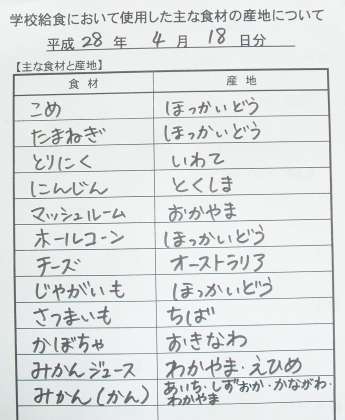 学校給食において使用した主な食材の産地について
平成 28 年 4 月 18 日分
【主な食材と産地】
食材 産地
こめ ほっかいどう
たまねぎ ほっかいどう
とりにく いわて
にんじん とくしま
マッシュルーム おかやま
ホールコーン ほっかいどう
チーズ オーストラリア
じゃがいも ほっかいどう
さつまいも ちば
かぼちゃ おきなわ
みかんジュース わかやま・えひめ
みかん(かん) あいち・しずおか・かながわ・
わかやま